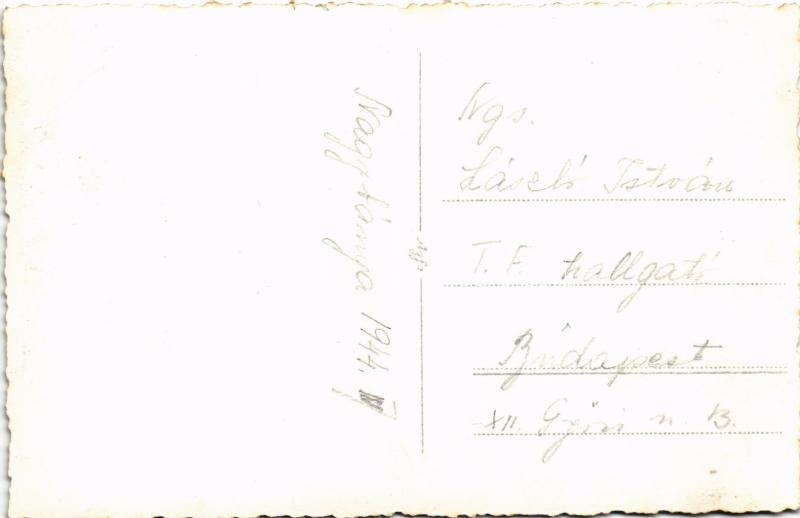 Nagybánya 1944. IV
Ngs.
László István
T. F. hallgató
Budapest
XII. Győri u. 13.